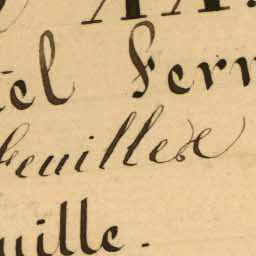 XX.
tel Ferr
Feuillex
uille.